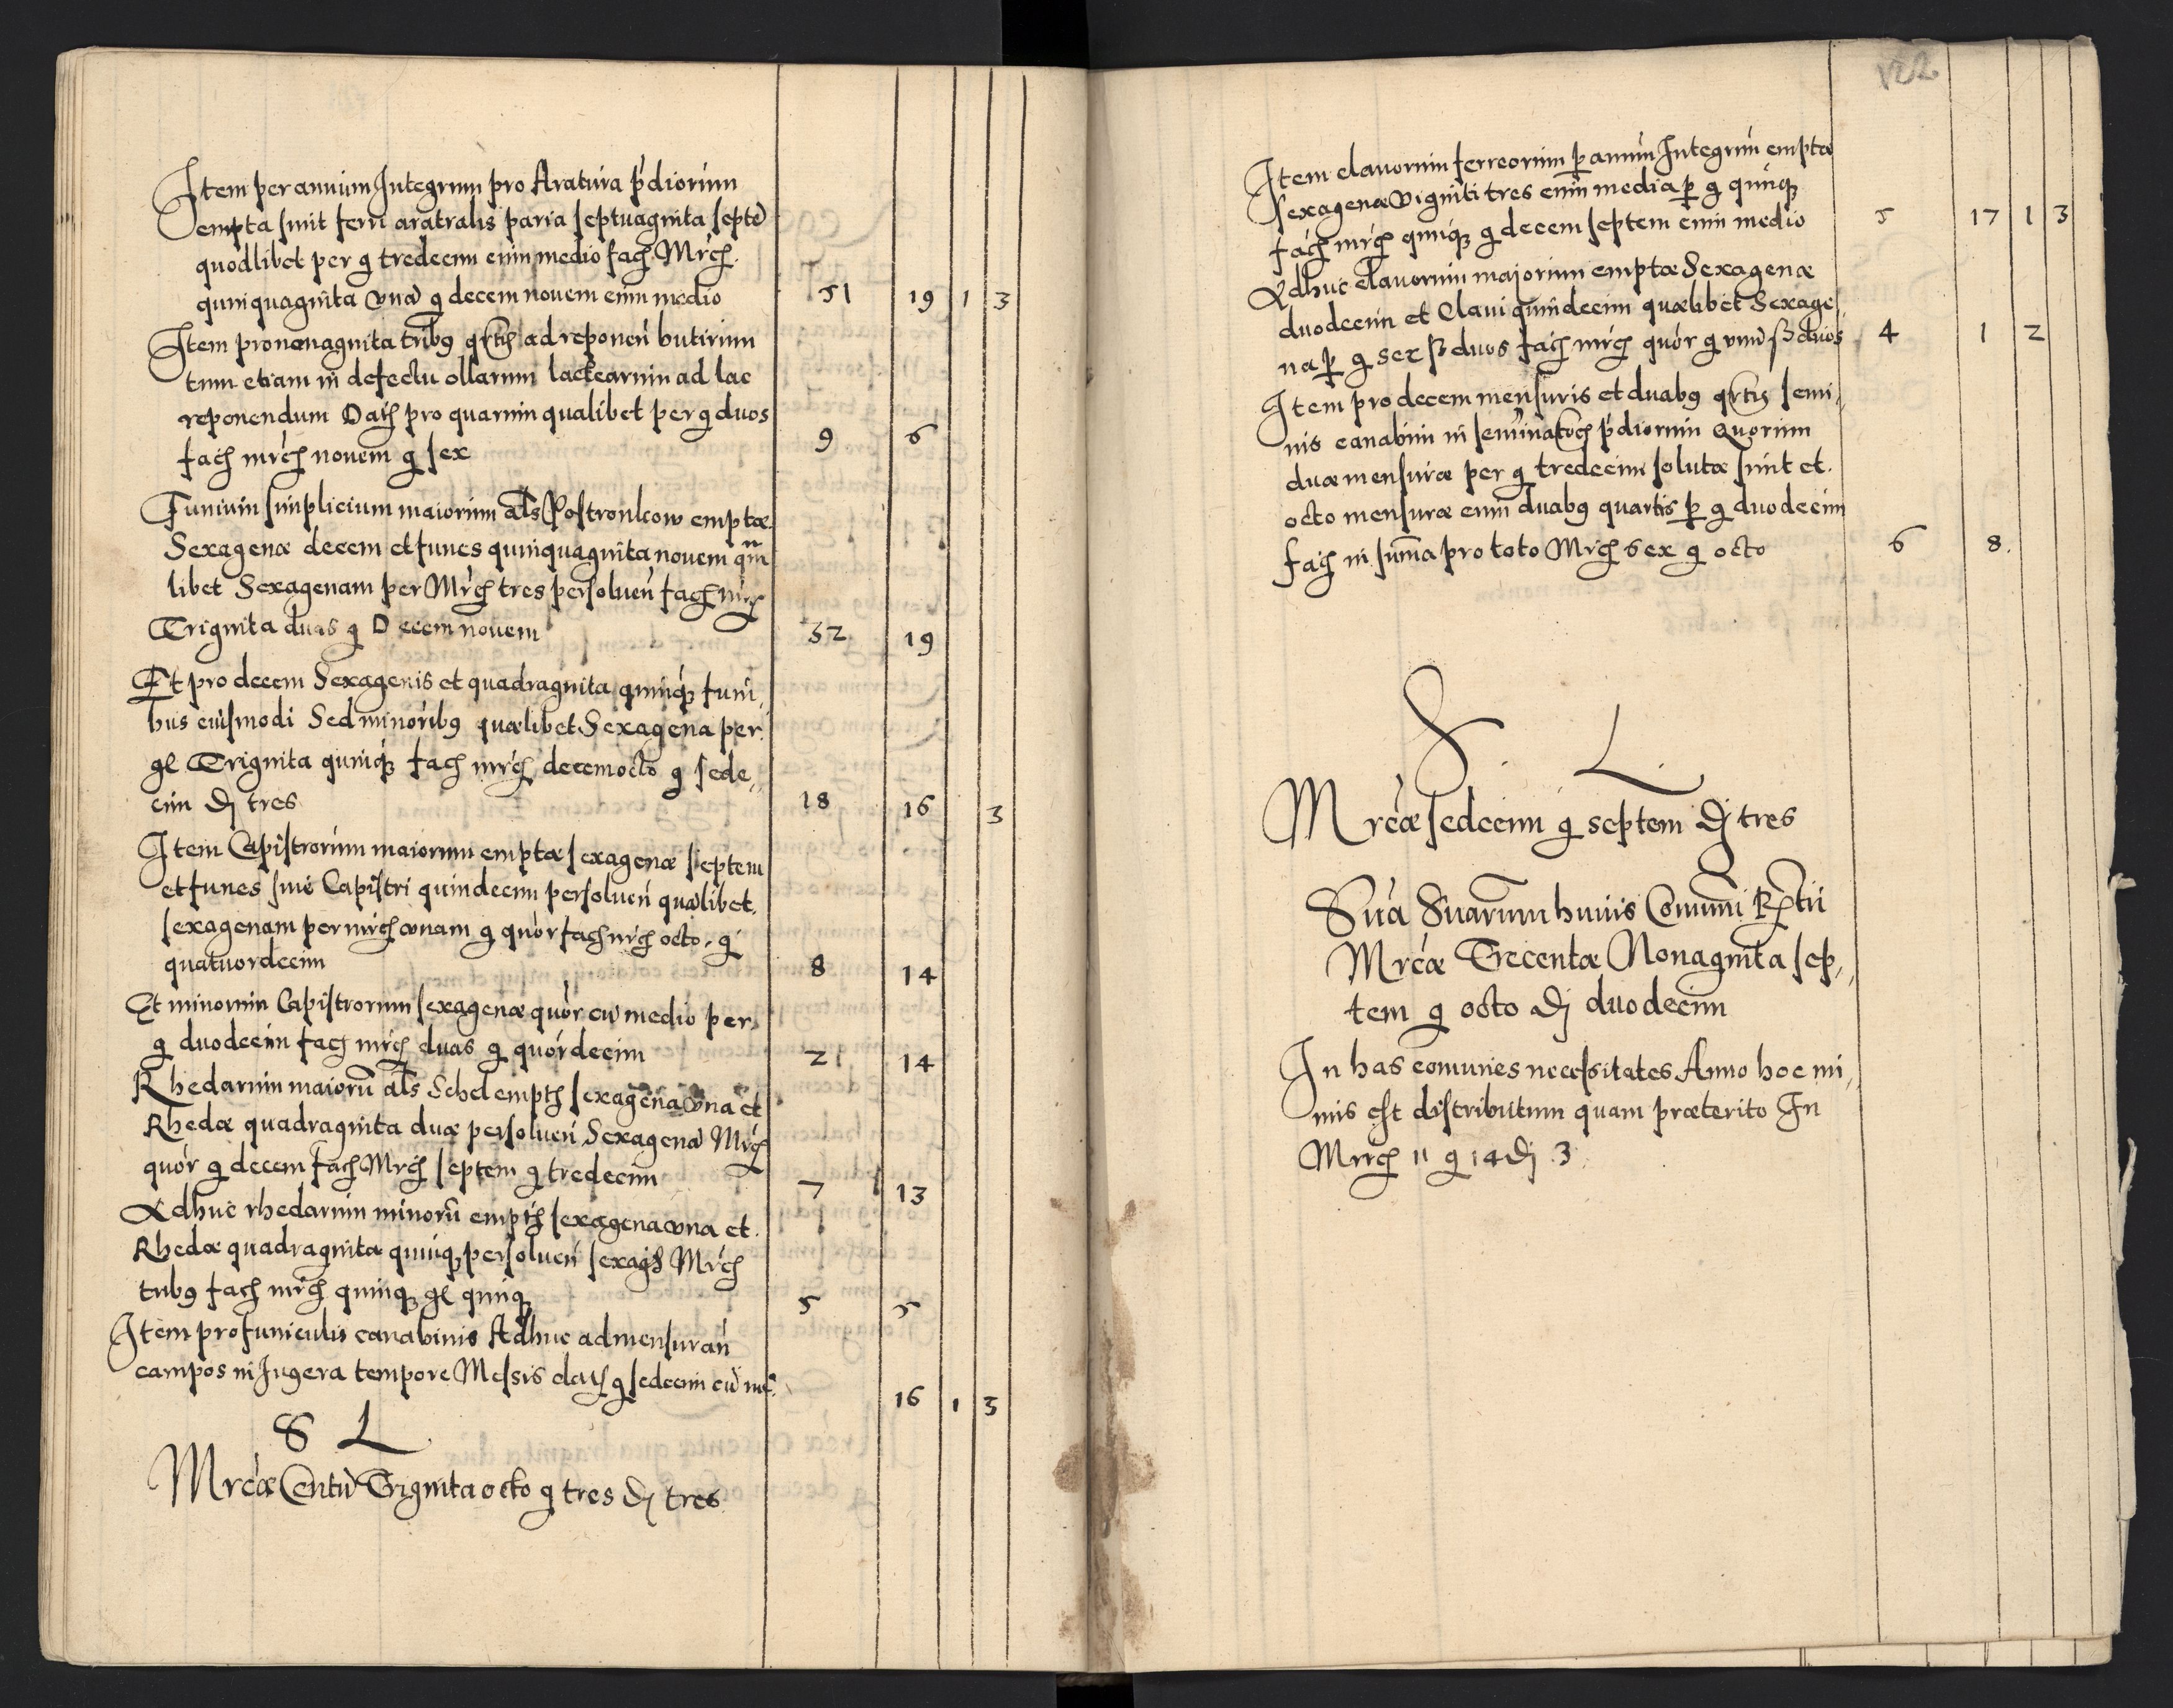 Item per annum Integrum pro Aratura p̃diorum
empta sunt ferri aratralis paria septuaginta septẽ
quodlibet per g̃ tredecim cum medio fac̃ Mrc̃
quinquaginta una g̃ decem novem cum medio 51 19 1 3
Item pro nonaginta tribꝰ qrtis ad reponeñ butirum
tum etiam in defectu ollarum lactearum ad lac
reponendum Datis pro quarum qualibet per g̃ duos
fac̃ mrc̃ novem g̃ sex 9 6
Funium simplicium maiorum als Postronkow emptæ
Sexagenæ decem et funes quinquaginta novem qm̃
libet Sexagenam per Mrc̃ tres persolueñ fac̃ mrc̃
Triginta duas g̃ Decem novem 32 19
Et pro decem Sexagenis et quadraginta quinq̃ funi,,
bus eiusmodi Sed minoribꝰ quælibet Sexagena per
gr̃ Triginta quinq̃ fac̃ mrc̃ decem octo g̃ sede,,
cim ₰ tres 18 16 3
Item Capistrorum maiorum emptæ sexagenæ septem
et funes sine Capistri quindecim persolueñ qualibet
sexagenam per mrc̃ unam g̃ quor fac̃ mrc̃ octo g̃
quatuordecim 8 14
Et minorum Capistrorum sexagenæ quor cũ medio per
g̃ duodecim fac̃ mrc̃ duas g̃ quordecim 2 14
Rhedarum maiorũ als Schel empts sexagena una et
Rhedæ quadraginta duæ persolueñ Sexagenã Mrc̃
quor g̃ decem fac̃ Mrc̃ septem g̃ tredecim 7 13
Adhuc rhedarum minorũ empts sexagena una et
Rhedæ quadraginta quinq̃ persolueñ sexags Mrc̃
tribꝰ fac̃ mrc̃ quinq̃ gr̃ quinq̃ 5 5
Item pro funiculis canabinis Adhuc admensurañ
campos in Jugera tempore Messis datis g̃ sedecim cũ me: 16 1 3
S L
Mrcæ Centũ Triginta octo g̃ tres ₰ tres
122
Item clavorum ferreorum p̱ annum Integrum emptæ
sexagenæ Viginti tres cum media p̱ g̃ quinq̃
fac̃ mrc̃ quinq̃ g̃ decem septem cum medio 5 17 1 3
Adhuc clavorum majorum emptæ Sexagenæ
duodecim et Clavi quindecim quælibet Sexage,,
na p̱ g̃ sex ß duos fac̃ mrc̃ quor g̃ unũ ß duos 4 1 2
Item pro decem mensuris et duabꝰ qrtis semi,,
nis canabini in seminatõch p̃diorum Quorum
duæ mensuræ per g̃ tredecim solutæ sunt et
octo mensuræ cum duabꝰ quartis p̱ g̃ duodecim
fac̃ in sum̃a pro toto Mrc̃ Sex g̃ octo 6 8.
S. L.
Mrcæ sedecim g̃ septem ₰ tres
Sũa Suarum huius Comuni Rp̃tũ
Mrcæ Trecentæ Nonaginta sep,,
tem g̃ octo ₰ duodecim
In has comunes necessitates Anno hoc mi,,
nus est distributum quam præterito In
Mrc̃ 11 g̃ 14 ₰ 3